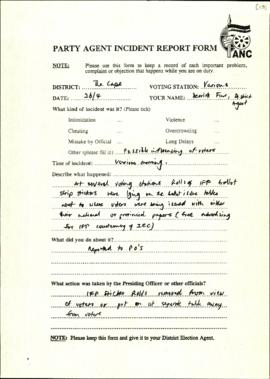 ANC
PARTY AGENT INCIDENT REPORT FORM
NOTE: Please use this form to keep a record of each important problem, complaint or objection that happens while you are on duty.
DISTRICT: The Cape VOTING STATION: Various
DATE: 26/4 YOUR NAME: Derrick Fine, District Agent
What kind of incident was it? (Please tick)
Intimidation ... Violence ...
Cheating ... Overcrowding ...
Mistake by Official ... Long Delays ...
Other (please fill in) Possible influencing of voters
Time of incident: Various morning.
Describe what happened:
At several voting stations Rolls of IFP ballot
strip stickers were lying on
next to where voters were being issued with either
their national or provincial papers (free advertising
for IFP courtesy of IEC)
What did you do about it?
Reported to PO's
What action was taken by the Presiding Officer or other officials?
IFP sticker Rolls removed from view
of voters or put on separate table away
from voters
NOTE: Please keep this form and give it to your District Election Agent.